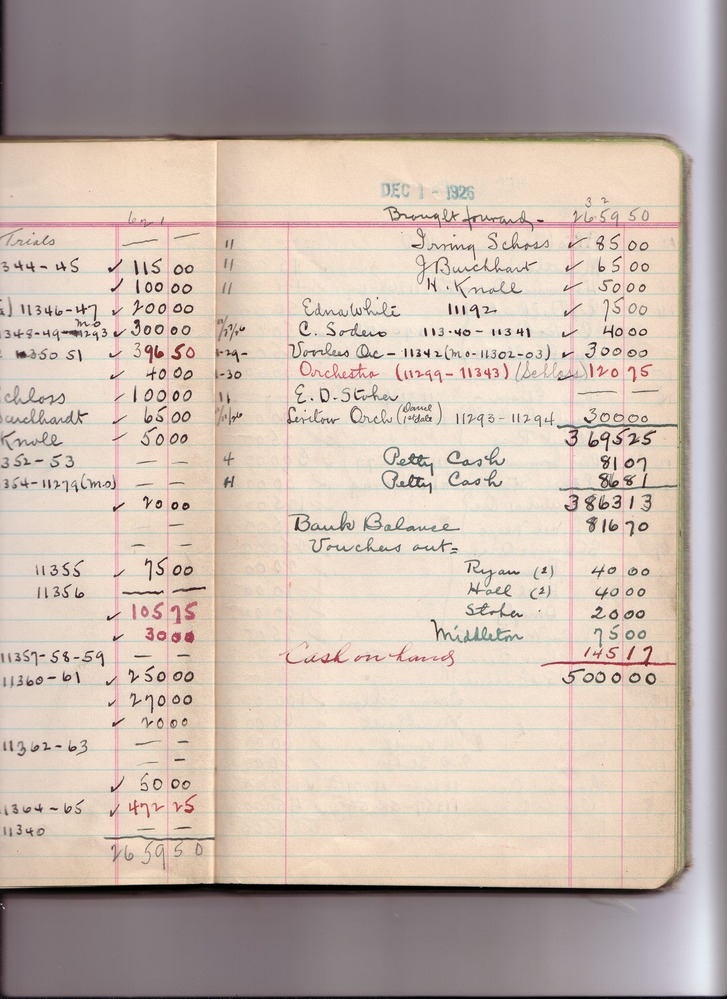 621
Trials — —
344-45 ✓ 115 00
✓ 100 00
) 11346-47 ✓ 200 00
1348-49 mo 11293 ✓ 300 00
11350 51 ✓ 396 50
✓ 40 00
Schloss ✓ 100 00
Burchhardt ✓ 65 00
Knoll ✓ 50 00
352-53 — —
354-11279 (mo) — —
✓ 20 00
—
— —
11355 ✓ 75 00
11356 —
✓ 105 75
✓ 30 00
11357-58-59 — —
11360-61 ✓ 250 00
✓ 270 00
✓ 20 00
11362-63 — —
— —
✓ 50 00
11364-65 ✓ 472 25
11340 — —
2659 50
DEC 1 - 1926
32
Brought forward - 2659 50
" Irving Schoss ✓ 85 00
" J Burchhart ✓ 65 00
" H. Knoll ✓ 50 00
Edna White 11192 ✓ 75 00
C. Sodero 113-40-11341 ✓ 40 00
-29- Voorhees Oc - 11342 (mo-11302-03) ✓ 300 00
-30 Orchestra (11299-11343) (Schloss) ✓ 120 75
11 E. D. Stoher — —
Orch (Dance 1st date) 11293-11294 300 00
3695 25
4 Petty Cash 81 07
Petty Cash 86 81
3863 13
Bank Balance 816 70
Vouchers out =
Ryan (2) 40 00
Hall (2) 40 00
Stoher 20 00
Middleton 75 00
Cash on hand 145 17
5000 00